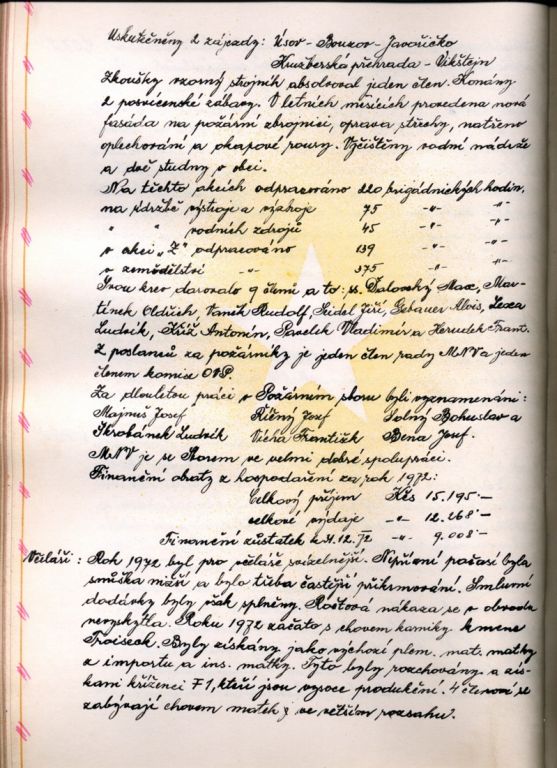 Uskutečněny 2 zájezdy: Úsov - Bouzov - Javoříčko
Kružberská přehrada - Vikštejn
Zkoušky vzorný strojník absolvoval jeden člen. Konány
2 posvícenské zábavy. V letních měsících provedena nová
fasáda na požární zbrojnici, oprava střechy, natřeno
oplechování a okapové roury. Vyčištěny vodní nádrže
a dvě studny v obci.
Na těchto akcích odpracováno 220 brigádnických hodin,
na údržbě výstroje a výzbroje 75 -"- -"-
" " vodních zdrojů 45 -"- -"-
v akci „Z" odpracováno 139 -"- -"-
v zemědělství -"- 375 -"- -"-
Svou krev darovalo 9 členů a to: ss. Max, Mar-
tínek Oldřich, Vaněk Rudolf, Seidel Jiří, Gebauer Alois, Lexa
Ludvík, Kříž Antonín, Pavelek Vladimír a Herudek Frant.
Z poslanců za požárníky je jeden člen rady MNV a jeden
členem komise OVP.
Za dlouletou práci v Požárním sboru byli vyznamenáni:
Majnuš Josef Říčný Josef Volný Bohuslav a
Škrobánek Ludvík Vícha František Bena Josef.
MNV je se Sborem ve velmi dobré spolupráci.
Finanční obraty z hospodaření za rok 1972:
Celkový příjem Kčs 15.195.-
celkové výdaje -"- 12.268.-
Finanční zůstatek k 31.12.72 -"- 9.008.-
Včeláři: Rok 1972 byl pro včeláře svízelnější. Nepřízní počasí byla
snůška menší a bylo třeba častější přikrmování. Smluvní
dodávky byly však splněny. Roztočová nákaza se v obvodu
nevyskytla. Roku 1972 začato s chovem karniky kmene
Troiseck. Byly získány jako výchozí plem. mat. matky
z importu a ins. matky. Tyto byly rozchovány a zís-
káni kříženci F1, kteří jsou vysoce produkční. 4 členové se
zabývají chovem matek ve větším rozsahu.